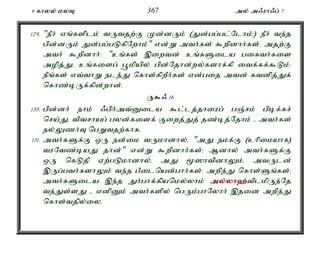 9 காலல் மலவு 367 அல் அஃராஃப் 7
129. "நீர் எங்களிடம் வருவதற்கு முன்னரும் (துன்பப்பட்டோம்;) நீர் வந்த
பின்னரும் துன்பப்படுகிறோம்" என்று அவர்கள் கூறினார்கள். அதற்கு
அவர் கூறினார்: "உங்கள் இறைவன் உங்களுடைய பகைவர்களை
அழித்து, உங்களைப் பூமியில் பின்தோன்றல்களாக்கி வைக்கக்கூடும்;
நீங்கள் எவ்வாறு நடந்து கொள்கிறீர்கள் என்பதை அவன் கவனித்துக்
கொண்டிருக்கின்றான்.
ருகூஃ 16
130. பின்னர் நாம் ஃபிர்அவ்னுடைய கூட்டத்தாரைப் பஞ்சம் பிடிக்கச்
செய்து, விவசாயப் பலன்களைக் குறைத்துத் தண்டித்தோம் - அவர்கள்
நல்லுணர்வு பெறுவதற்காக.
131. அவர்களுக்கு ஒரு நன்மை வருமானால், "அது நமக்கு (உரிமையாக)
வரவேண்டியது தான்" என்று கூறினார்கள்; ஆனால் அவர்களுக்கு
ஒரு கெடுதி ஏற்படுமானால், அது மூஸாவினாலும், அவருடன்
இருப்பவர்களாலும் வந்த பீடையென்பார்கள்; அறிந்து கொள்ளுங்கள்;
அவர்களுடைய இந்த துர்பாக்கியமெல்லாம் அல்லாஹ்விடமிருந்தே
வந்துள்ளது - எனினும் அவர்களில் பெரும்பாலோர் இதனை அறிந்து
கொள்வதில்லை.